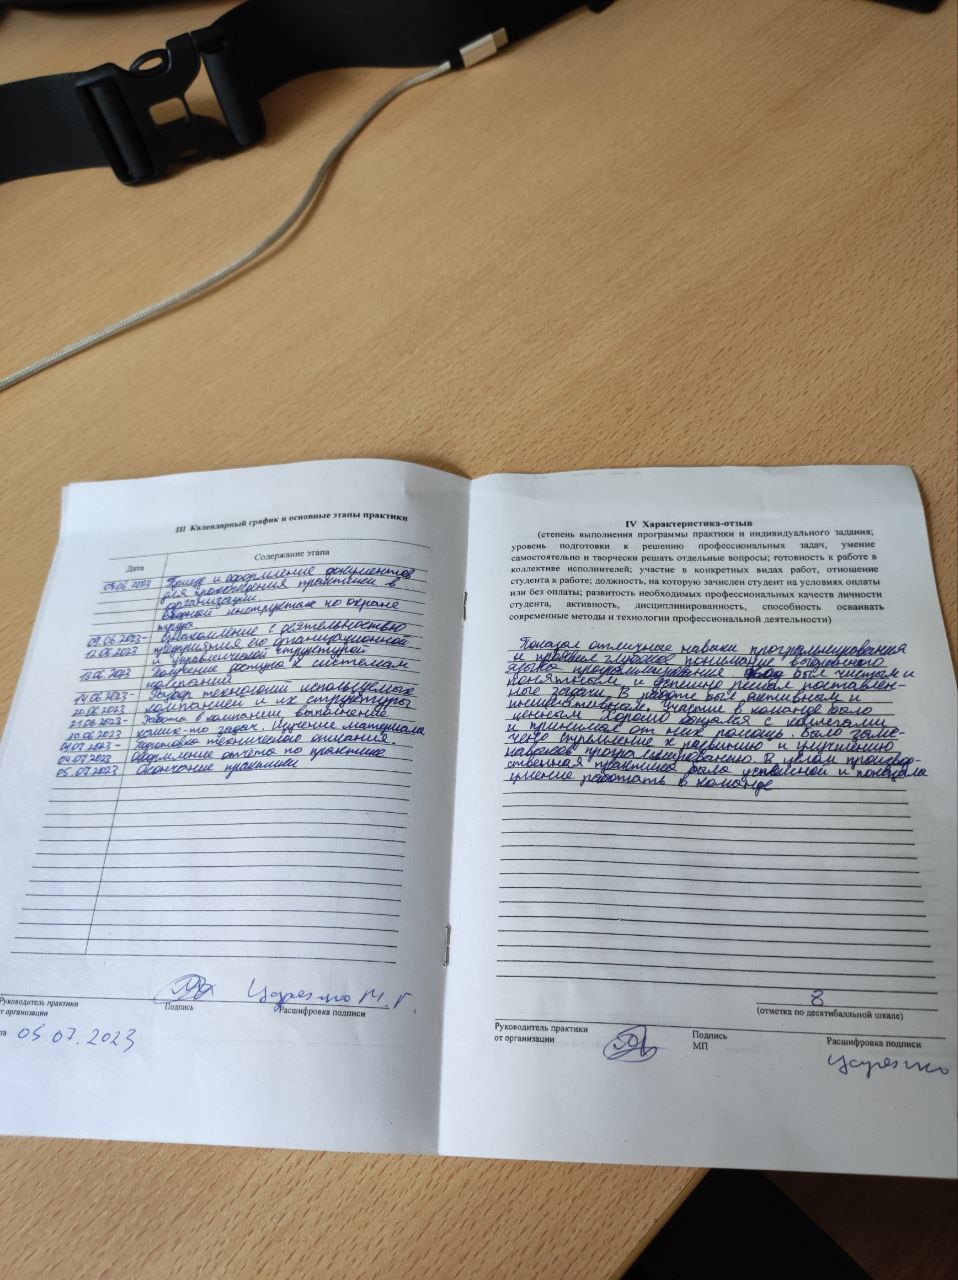 III Календарный график и основные этапы практики
Дата
Содержание этапа
Приезд и оформление документов
для прохождения практики в
организации
Вводной инструктаж по охране
труда
09.06.2023- Ознакомление с деятельностью
12.06.2023 предприятия его организационной
и управленческой структурой
13.06.2023 Получение доступа к системам
компаний
14.06.2023- Разбор технологии используемых
20.06.2023 компанией и их структуры
21.06.2023- Работа в компании выполнение
каких-то задач. Изучение материала
Подготовка технического описания.
04.07.2023 Оформление отчёта по практике
05.07.2023 Окончание практики
Руководитель практики
от организации
Подпись
Расшифровка подписи
05.07.2023
IV Характеристика-отзыв
(степень выполнения программы практики и индивидуального задания;
уровень подготовки к решению профессиональных задач, умение
самостоятельно и творчески решать отдельные вопросы; готовность к работе в
коллективе исполнителей; участие в конкретных видах работ, отношение
студента к работе; должность, на которую зачислен студент на условиях оплаты
или без оплаты; развитость необходимых профессиональных качеств личности
студента, активность, дисциплинированность, способность осваивать
современные методы и технологии профессиональной деятельности)
Показал отличные навыки программирования
и проявил глубокое понимание выбранного
языка программирования был чистым и
понятным и успешно решал поставлен-
ные задачи. В работе был активным и
инициативным. Участие в команде было
ценным. Хорошо общался с коллегами
и принимал от них помощь. Было заме-
чено стремление к развитию и улучшению
навыков программированию. В целом производ-
ственная практика была успешной и показала
умение работать в команде
8
(отметка по десятибалльной шкале)
Руководитель практики
от организации
Подпись
МП
Расшифровка подписи